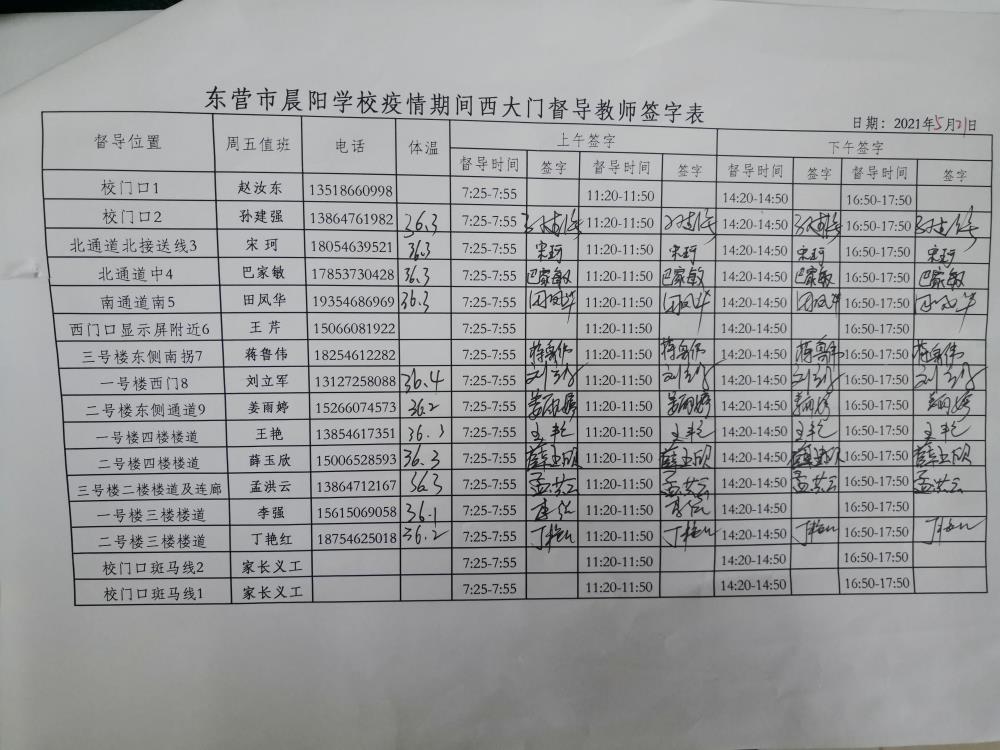 东营市晨阳学校疫情期间西大门督导教师签字表
日期：2021年5月21日
督导位置 周五值班 电话 体温 上午签字 下午签字
督导时间 签字 督导时间 签字 督导时间 签字 督导时间 签字
校门口1 赵汝东 13518660998 7:25-7:55 11:20-11:50 14:20-14:50 16:50-17:50
校门口2 孙建强 13864761982 36.3 7:25-7:55 11:20-11:50 14:20-14:50 16:50-17:50
北通道北接送线3 宋珂 18054639521 36.3 7:25-7:55 宋珂 11:20-11:50 宋珂 14:20-14:50 宋珂 16:50-17:50 宋珂
北通道中4 巴家敏 17853730428 36.3 7:25-7:55 巴家敏 11:20-11:50 巴家敏 14:20-14:50 巴家敏 16:50-17:50 巴家敏
南通道南5 田凤华 19354686969 36.3 7:25-7:55 田凤华 11:20-11:50 田凤华 14:20-14:50 田凤华 16:50-17:50 田凤华
西门口显示屏附近6 王芹 15066081922 7:25-7:55 11:20-11:50 14:20-14:50 16:50-17:50
三号楼东侧南拐7 蒋鲁伟 18254612282 7:25-7:55 蒋鲁伟 11:20-11:50 蒋鲁伟 14:20-14:50 蒋鲁伟 16:50-17:50 蒋鲁伟
一号楼西门8 刘立军 13127258088 36.4 7:25-7:55 11:20-11:50 14:20-14:50 16:50-17:50
二号楼东侧通道9 姜雨婷 15266074573 36.2 7:25-7:55 姜雨婷 11:20-11:50 姜雨婷 14:20-14:50 姜雨婷 16:50-17:50 姜雨婷
一号楼四楼楼道 王艳 13854617351 36.3 7:25-7:55 王艳 11:20-11:50 王艳 14:20-14:50 王艳 16:50-17:50 王艳
二号楼四楼楼道 薛玉欣 15006528593 36.3 7:25-7:55 薛玉欣 11:20-11:50 薛玉欣 14:20-14:50 薛玉欣 16:50-17:50 薛玉欣
三号楼二楼楼道及连廊 孟洪云 13864712167 36.3 7:25-7:55 孟洪云 11:20-11:50 孟洪云 14:20-14:50 孟洪云 16:50-17:50 孟洪云
一号楼三楼楼道 李强 15615069058 36.1 7:25-7:55 11:20-11:50 14:20-14:50 16:50-17:50
二号楼三楼楼道 丁艳红 18754625018 36.2 7:25-7:55 丁艳红 11:20-11:50 丁艳红 14:20-14:50 丁艳红 16:50-17:50 丁艳红
校门口斑马线2 家长义工 7:25-7:55 11:20-11:50 14:20-14:50 16:50-17:50
校门口斑马线1 家长义工 7:25-7:55 11:20-11:50 14:20-14:50 16:50-17:50